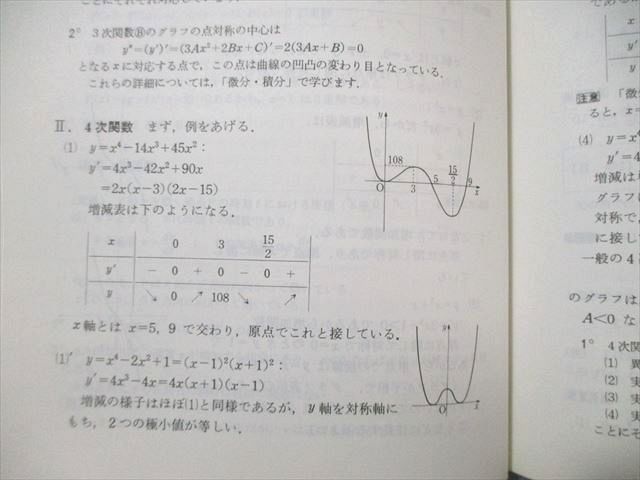 2° 3次関数Ⓑのグラフの点対称の中心は
y″=(y′)′=(3Ax²+2Bx+C)′=2(3Ax+B)=0
となるxに対応する点で，この点は曲線の凹凸の変わり目となっている．
これらの詳細については，「微分・積分」で学びます．
Ⅱ． 4次関数 まず，例をあげる．
(1) y=x⁴−14x³+45x²：
y′=4x³−42x²+90x
=2x(x−3)(2x−15)
増減表は下のようになる．
y
108
15/2
O
3
5
9
x
x 0 3 15/2
y′ − 0 + 0 − 0 +
y ↘ 0 ↗ 108 ↘ ↗
x軸とは x=5, 9 で交わり，原点でこれと接している．
(1)′ y=x⁴−2x²+1=(x−1)²(x+1)²：
y′=4x³−4x=4x(x+1)(x−1)
増減の様子はほぼ(1)と同様であるが， y軸を対称軸に
もち，2つの極小値が等しい．
y
O
x
x
y′
y
注意 「微
ると，x=
(4) y=x⁴
y′=4
増減は
グラフは
対称で，
に接して
一般の4
のグラフは
A<0 な
1° 4次関
(1) 異
(2) 実
(3) 実
(4) 実
ことにそ